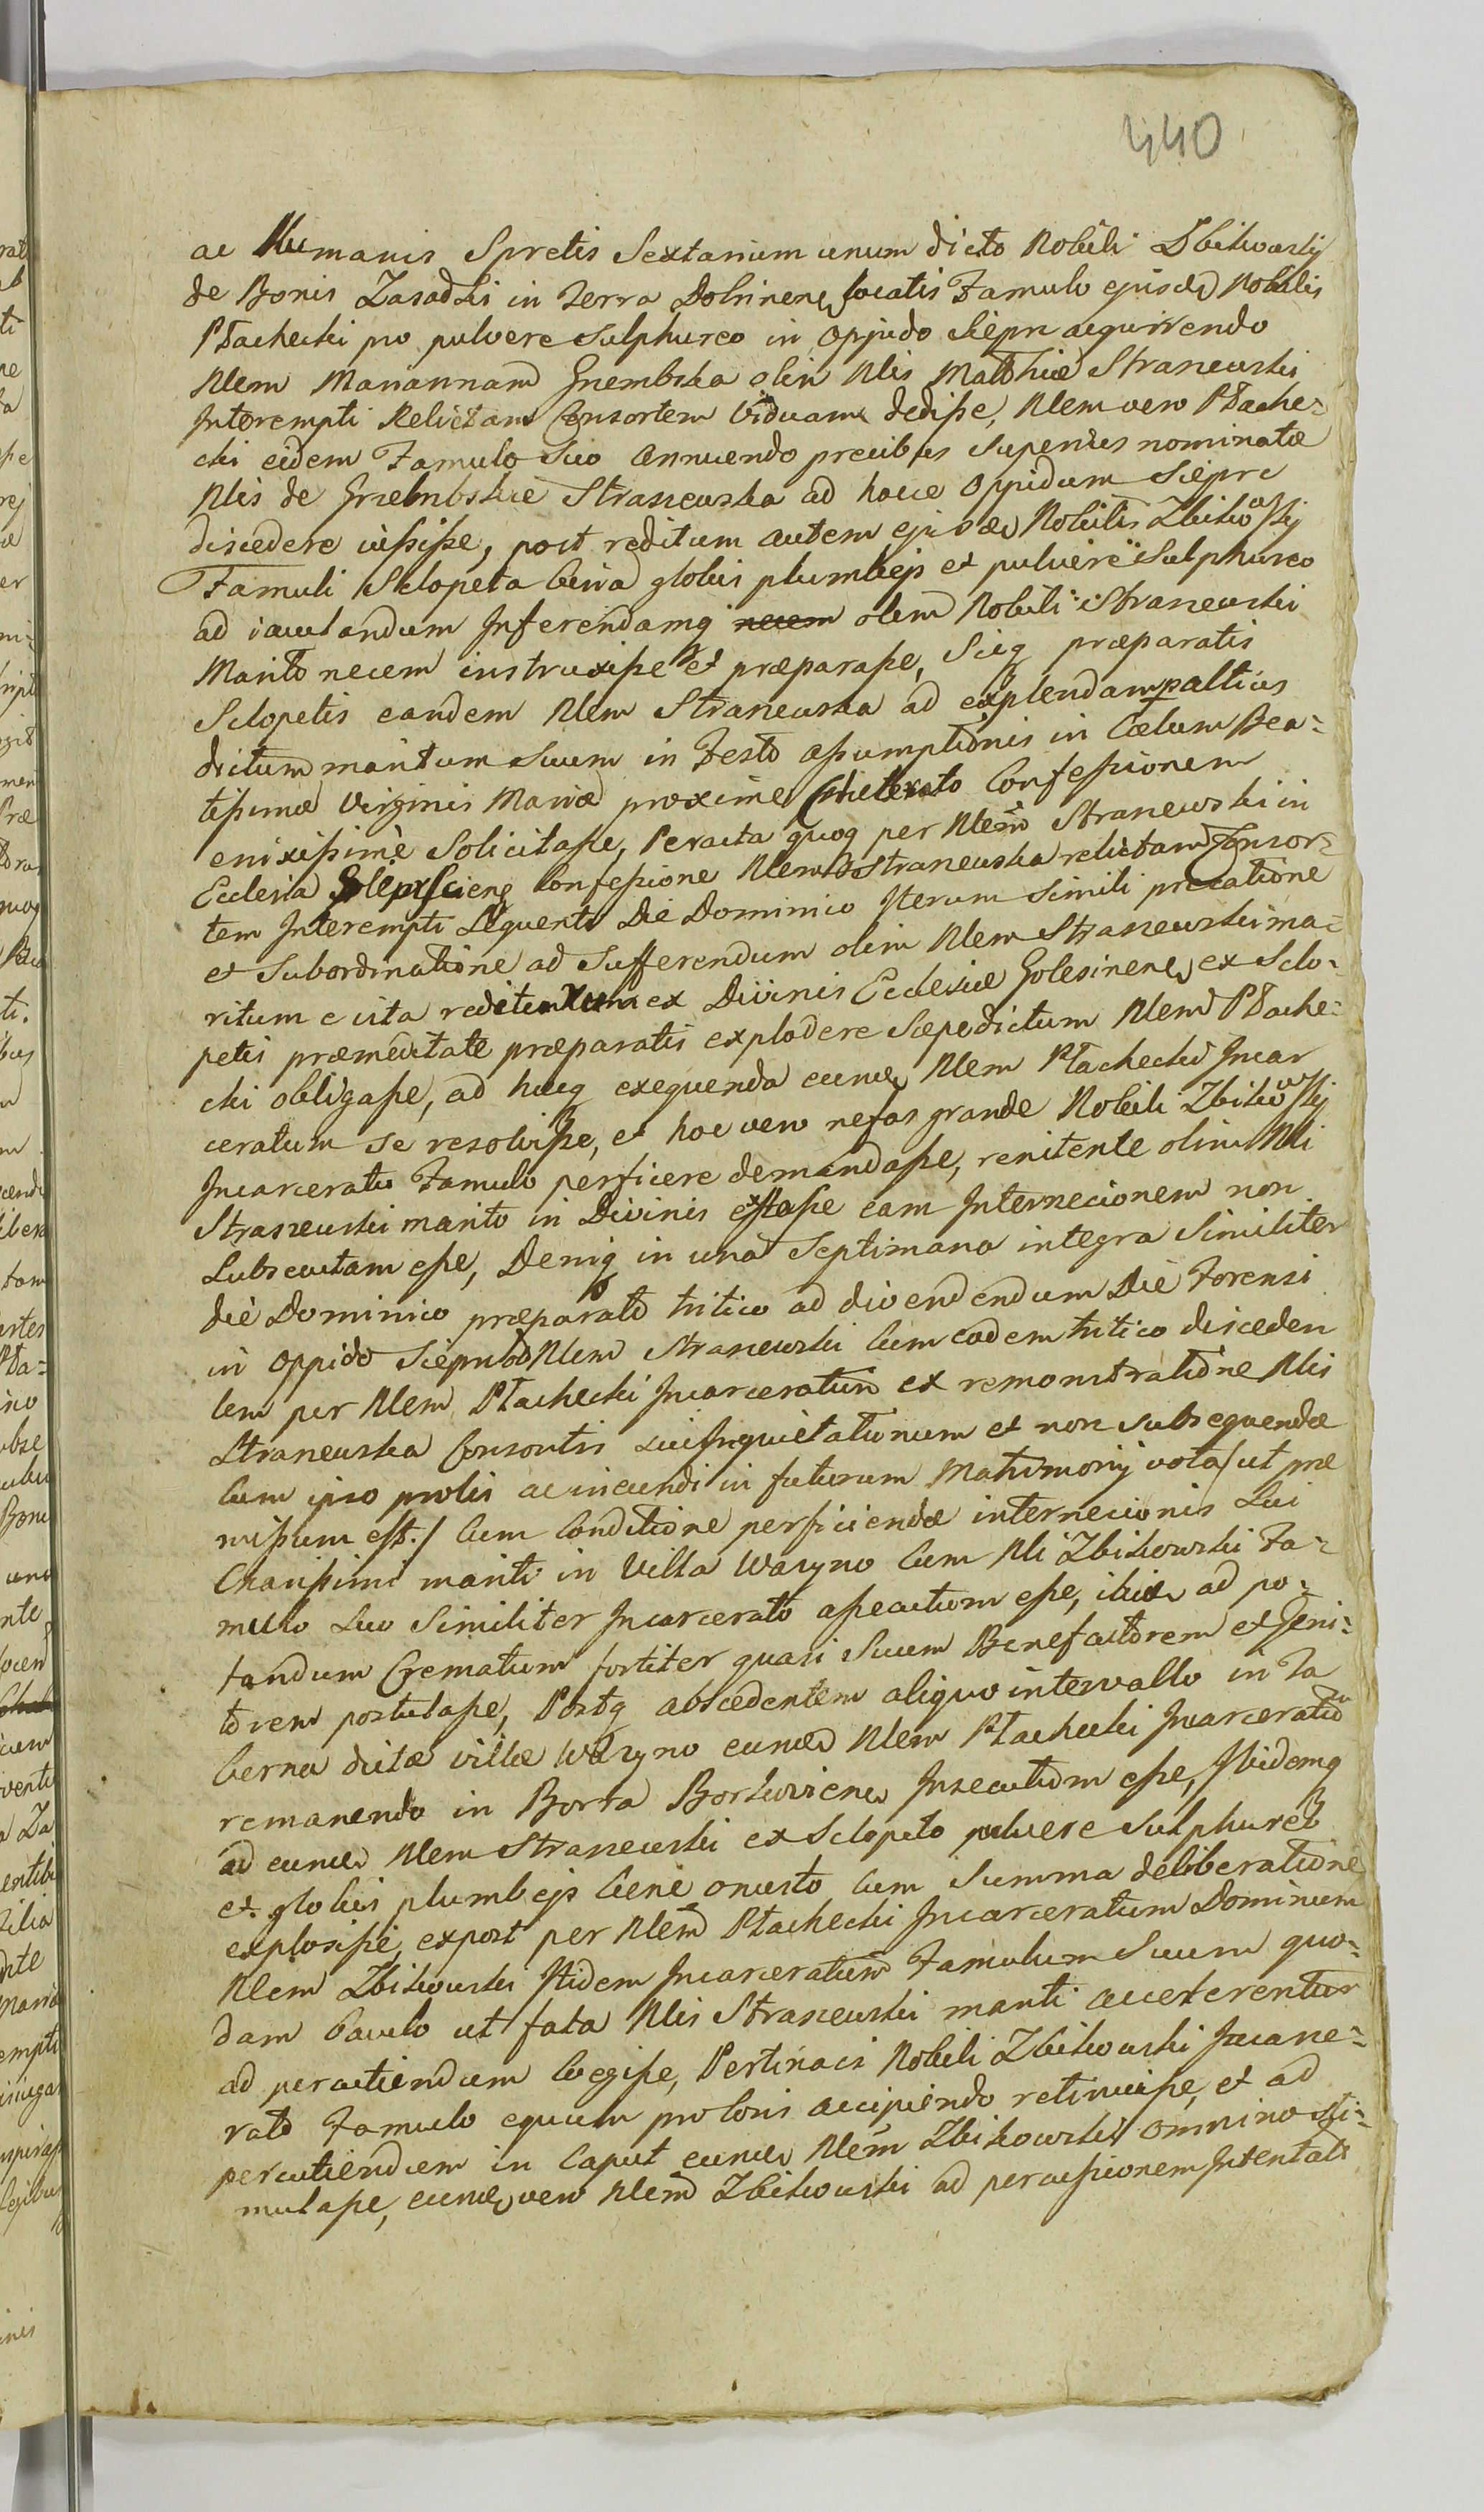 440
ac Humanis Spretis Sextarium unum dicto Nobili Zbikowskÿ
de Bonis Zasadki in Terra Dobrinenс locatis Famulo ejusdъ Nobilis
Ptachecki pro pulvere sulphureo in oppido Siepru acquirrendo
Nlem Mariannam Grzembska olim Nlis Matthiæ Straszewski
Interempti Relictam Consortem Viduam dedisse, Nlem vero Ptache=
cki eidem Famulo Suo annuendo precibus superius nominatæ
Nlis de Grzebmbskie Straszewska ad hocce oppidum Siepre
discedere iussisse, post reditum autem ejusdъ Nobilis Zbikowskÿ
Famuli Sclopeta bina globis plumbejs et pulvere Sulphureo
ad iaculandum Inferendamq necem olim Nobili Straszewski
Marito necem instruxisse et præparasse, Sicq præparatis
Sclopetis eandem Nlem Straszewska ad explendam paltius
dictum maritum Suum in Festo assumptionis in Cœlum Bea=
tissimæ Virginis Mariæ proxime præterito Confessionem
enixissimè Solicitasse, Peracta quoq per Nlem Straszewski in
Ecclesia Confessione Nlem Straszewska relictam Consor=
tem Interempti Sequenti Die Dominico Iterum Simili precatione
et Subordinatione ad Sufferendum olim Nlem Straszewski ma=
ritum e vita rediturum ex Divinis Ecclesiæ Golesinenс ex Sclo=
petis præmeditate præparatis explodere Sæpedictum Nlem Ptache=
cki obligasse, ad hæcq exequenda eundъ Nlem Ptachecki Incar
ceratum se resolvisse, et hoc vero nefas grande Nobili Zbikowskÿ
Incarcerato Famulo perficere demandasse, renitente olim Nli
Straszewski marito in Divinis extasse eam Internecionem non
Subsecutam esse, Deniq in una Septimana integra Similiter
die Dominico præparato tritico ad divendendum Die Forensi
in oppido Siepru Nlem Straszewski Cum eodem tritico disceden
tem per Nlem Ptachecki Incarceratum ex remonstratione Nlis
Straszewska Consortis sui Inquietationum et non subsequendæ
Cum ipso prolis ac ineundi in futurum Matrimonÿ vota /ut præ
missum est./ Cum Conditione perficiendæ internecionis Sui
Charissimi mariti in Villa Waryno Cum Nli Zbikowski Fa=
mulo Suo Similiter Incarcerato assecutum esse, ibidъ ad po=
tandum Crematum fortiter quasi Suum Benefactorem et Geni=
torem postulasse, Postq abscedentem aliquo intervallo in Ta
berna dictæ villæ Waryno eundъ Nlem Ptachecki Incarceratu
remanendo in Borra Borkovienс Insecutum esse, Ibidemq
ad eundъ Nlem Straszewski ex Sclopeto pulvere Sulphureo
et globis plumbejs bene onusto Cum Summa deliberatione
explosisse, expost per Nlem Ptachecki Incarceratum Dominum
Nlem Zbikowski Itidem Incarceratum Famulum Suum quo=
dam baculo ut fata Nlis Straszewski mariti accelerentur
ad percutiendum Coegisse, Pertinaci Nobili Zbikowski Incarce=
rato Famulo equum pro loris accipiendo retinuisse, et ad
percutiendum in Caput eundъ Nlem Zbikowski omnino sti=
mulasse, eundъ vero Nlem Zbikowski ad percussionem Intentati